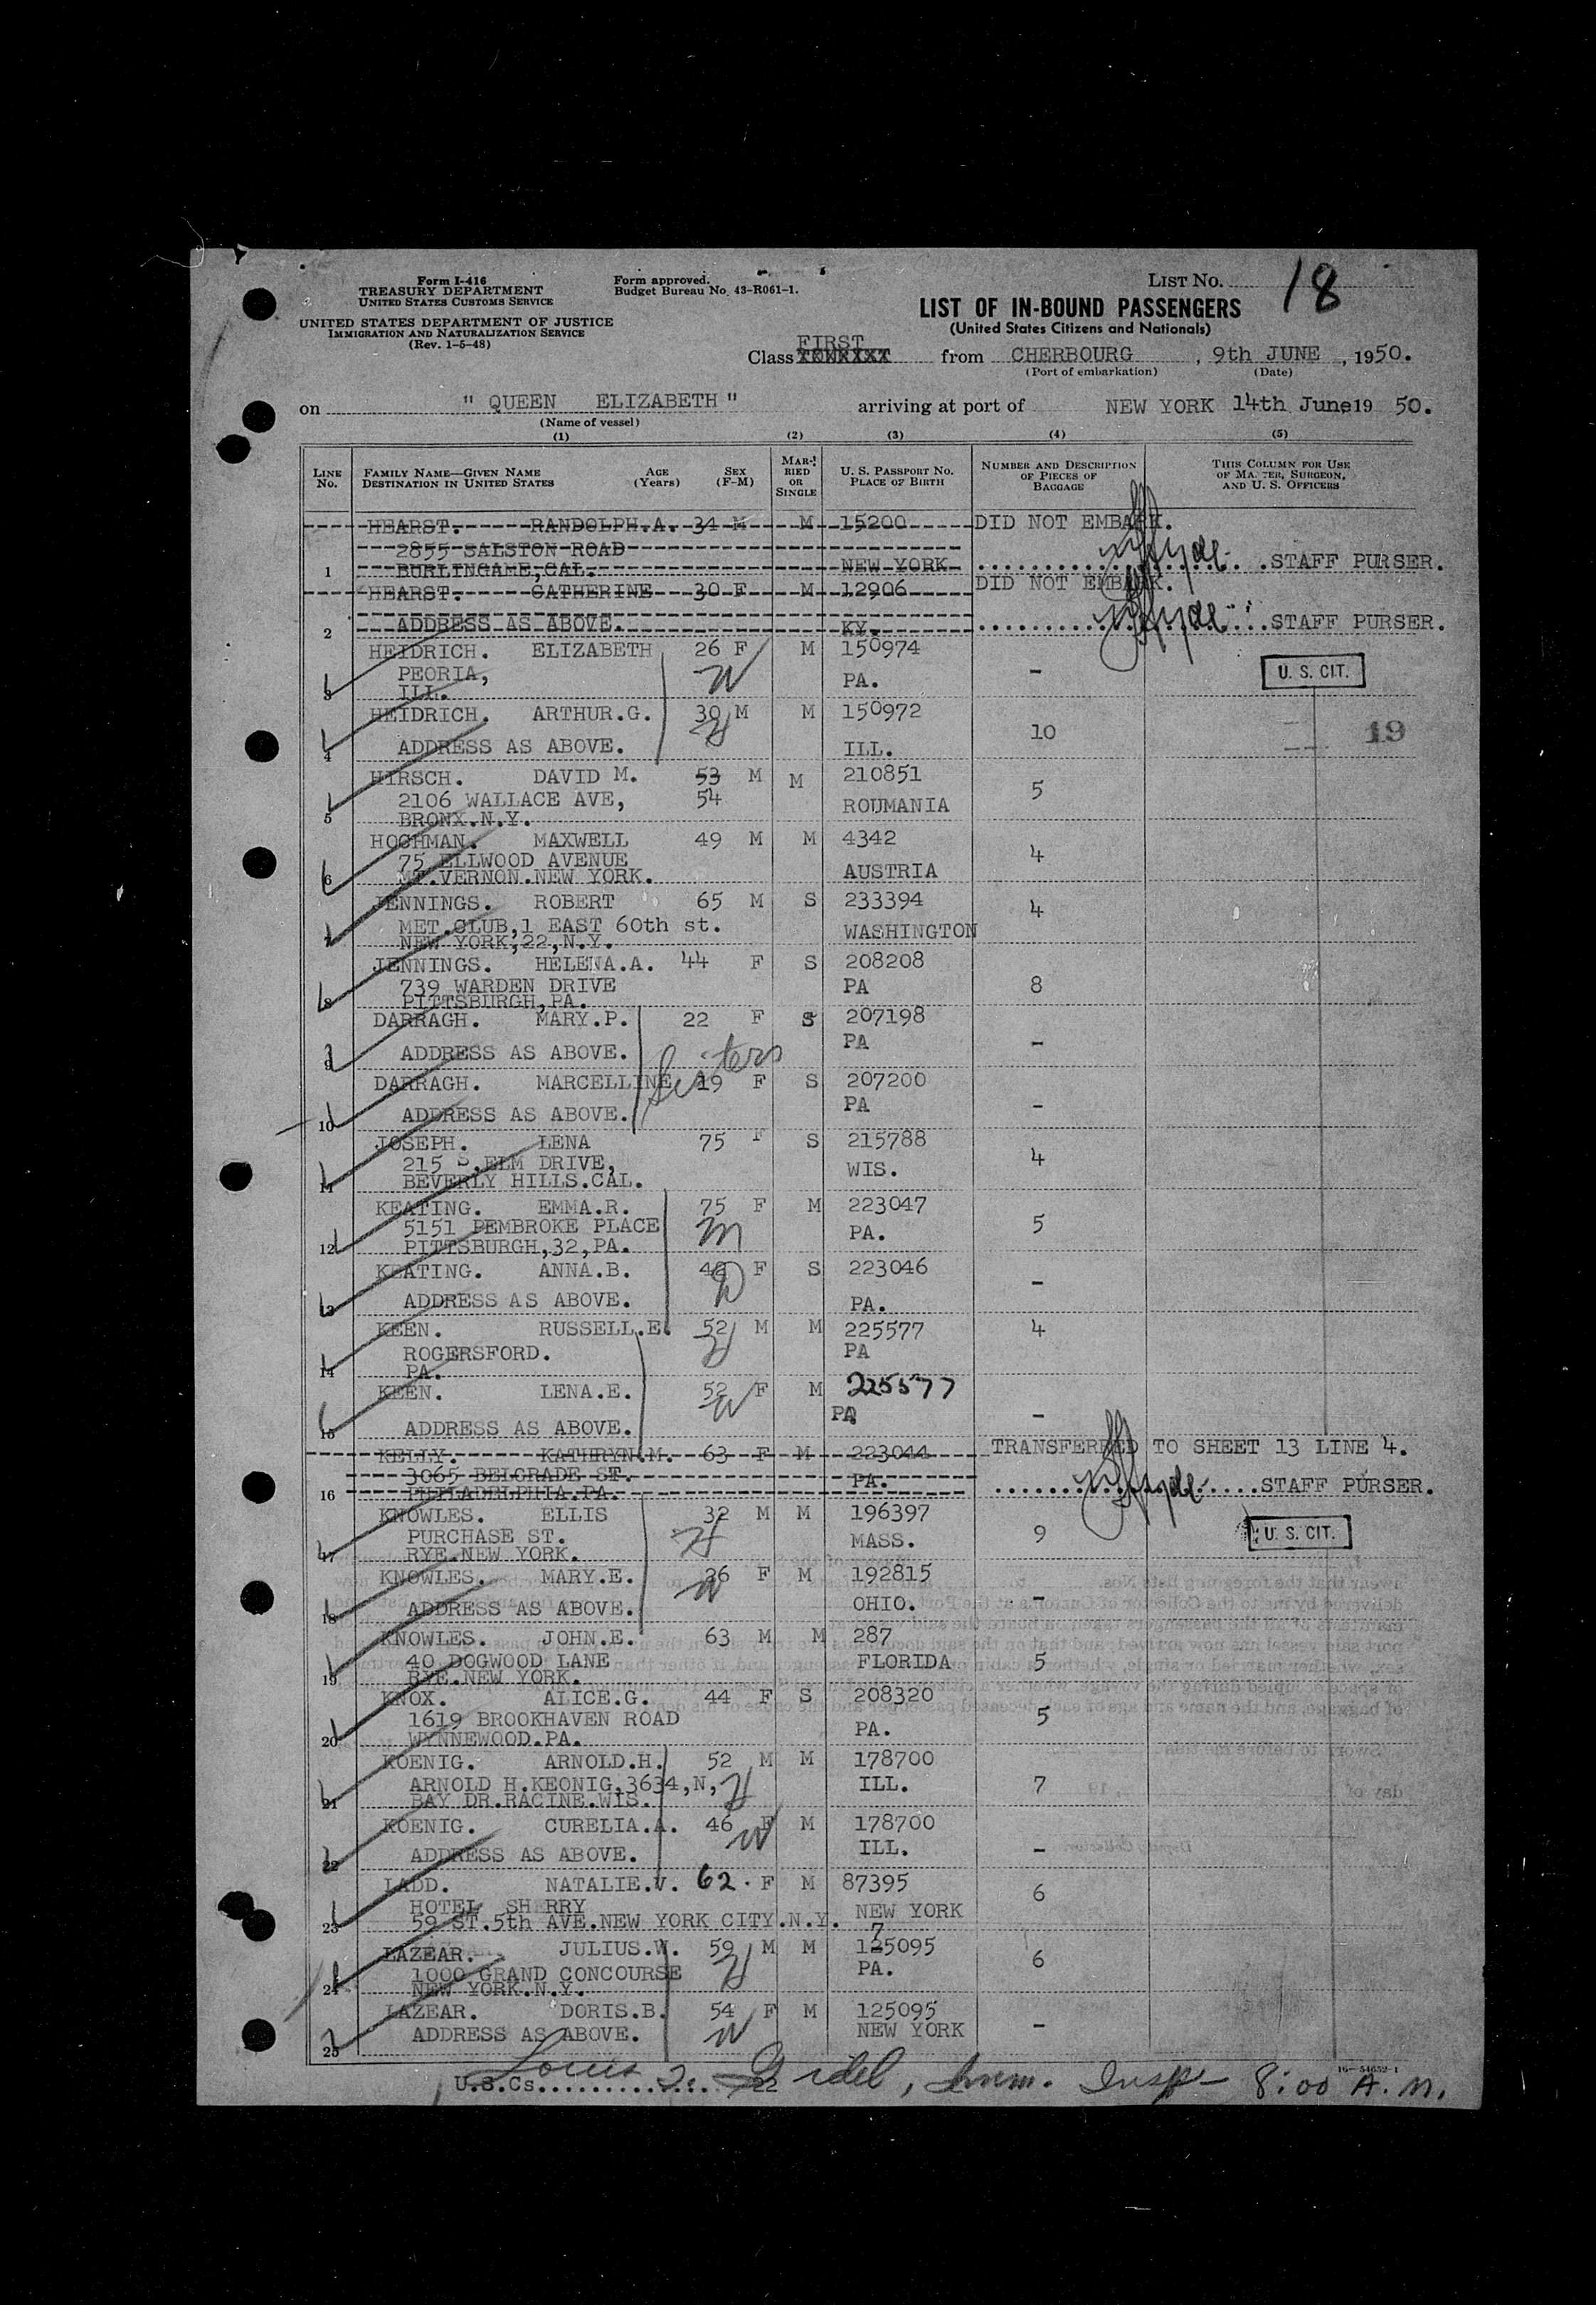 Form I-416
TREASURY DEPARTMENT
UNITED STATES CUSTOMS SERVICE
UNITED STATES DEPARTMENT OF JUSTICE
IMMIGRATION AND NATURALIZATION SERVICE
(Rev. 1-5-48)
Form approved.
Budget Bureau No. 43-R061-1.
LIST No. 18
LIST OF IN-BOUND PASSENGERS
(United States Citizens and Nationals)
FIRST
Class from CHERBOURG , 9th JUNE , 1950.
(Port of embarkation) (Date)
on " QUEEN ELIZABETH " arriving at port of NEW YORK 14th June 19 50.
(Name of vessel)
(1) (2) (3) (4) (5)
LINE No. FAMILY NAME—GIVEN NAME DESTINATION IN UNITED STATES AGE (Years) SEX (F-M) MARRIED OR SINGLE U. S. PASSPORT NO. PLACE OF BIRTH NUMBER AND DESCRIPTION OF PIECES OF BAGGAGE THIS COLUMN FOR USE OF MASTER, SURGEON, AND U. S. OFFICERS
HEARST. RANDOLPH.A. 34 M M 15200 DID NOT EMBARK.
2855 SALSTON ROAD
1 BURLINGAME,CAL. NEW YORK STAFF PURSER.
HEARST. CATHERINE 30 F M 12906 DID NOT EMBARK.
2 ADDRESS AS ABOVE. KY. STAFF PURSER.
HEIDRICH. ELIZABETH 26 F M 150974
PEORIA, W PA. - U. S. CIT.
3 ILL.
HEIDRICH. ARTHUR.G. 30 M M 150972
4 ADDRESS AS ABOVE. H ILL. 10 19
HIRSCH. DAVID M. 53 M M 210851
2106 WALLACE AVE, 54 ROUMANIA 5
5 BRONX.N.Y.
HOCHMAN. MAXWELL 49 M M 4342
75 ELLWOOD AVENUE 4
6 MT.VERNON.NEW YORK. AUSTRIA
JENNINGS. ROBERT 65 M S 233394 4
MET.CLUB,1 EAST 60th st. WASHINGTON
7 NEW YORK,22,N.Y.
JENNINGS. HELENA.A. 44 F S 208208
739 WARDEN DRIVE PA 8
8 PITTSBURGH,PA.
DARRAGH. MARY.P. 22 F S 207198
9 ADDRESS AS ABOVE. Sisters PA -
DARRAGH. MARCELLINE 19 F S 207200
10 ADDRESS AS ABOVE. PA -
JOSEPH. LENA 75 F S 215788
215 S.ELM DRIVE, WIS. 4
11 BEVERLY HILLS.CAL.
KEATING. EMMA.R. 75 F M 223047
5151 PEMBROKE PLACE M PA. 5
12 PITTSBURGH,32,PA.
KEATING. ANNA.B. F S 223046
13 ADDRESS AS ABOVE. D PA. -
KEEN. RUSSELL.E. 52 M M 225577 4
ROGERSFORD. H PA
14 PA.
KEEN. LENA.E. 52 F M 225577
15 ADDRESS AS ABOVE. W PA -
KELLY. KATHRYN.M. 63 F M 223044 TRANSFERRED TO SHEET 13 LINE 4.
3065 BELGRADE ST. PA.
16 PHILADELPHIA.PA. STAFF PURSER.
KNOWLES. ELLIS 32 M M 196397
PURCHASE ST. H MASS. 9 U. S. CIT.
17 RYE.NEW YORK.
KNOWLES. MARY.E. 26 F M 192815
18 ADDRESS AS ABOVE. W OHIO. -
KNOWLES. JOHN.E. 63 M M 287
40 DOGWOOD LANE FLORIDA 5
19 RYE.NEW YORK.
KNOX. ALICE.G. 44 F S 208320
1619 BROOKHAVEN ROAD PA. 5
20 WYNNEWOOD.PA.
KOENIG. ARNOLD.H. 52 M M 178700
ARNOLD H.KEONIG,3634,N, H ILL. 7
21 BAY DR.RACINE.WIS.
KOENIG. CURELIA.A. 46 F M 178700
22 ADDRESS AS ABOVE. W ILL. -
LADD. NATALIE.V. 62. F M 87395
HOTEL SHERRY NEW YORK 6
23 59 ST.5th AVE.NEW YORK CITY.N.Y.
7
LAZEAR. JULIUS.W. 59 M M 125095
1000 GRAND CONCOURSE H PA. 6
24 NEW YORK.N.Y.
LAZEAR. DORIS.B. 54 F M 125095
25 ADDRESS AS ABOVE. W NEW YORK -
16—54652-1
U.S.Cs. 22
Louis Imm. Insp 8:00 A.M.